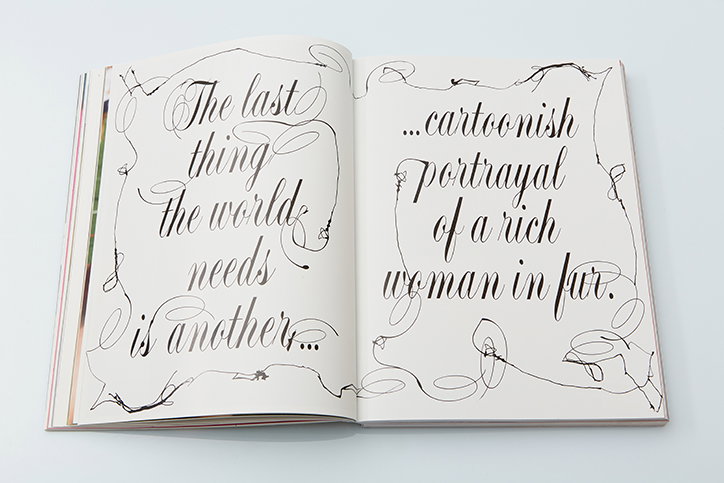 The last
thing
the world
needs
is another,...
...cartoonish
portrayal
of a rich
woman in fur.